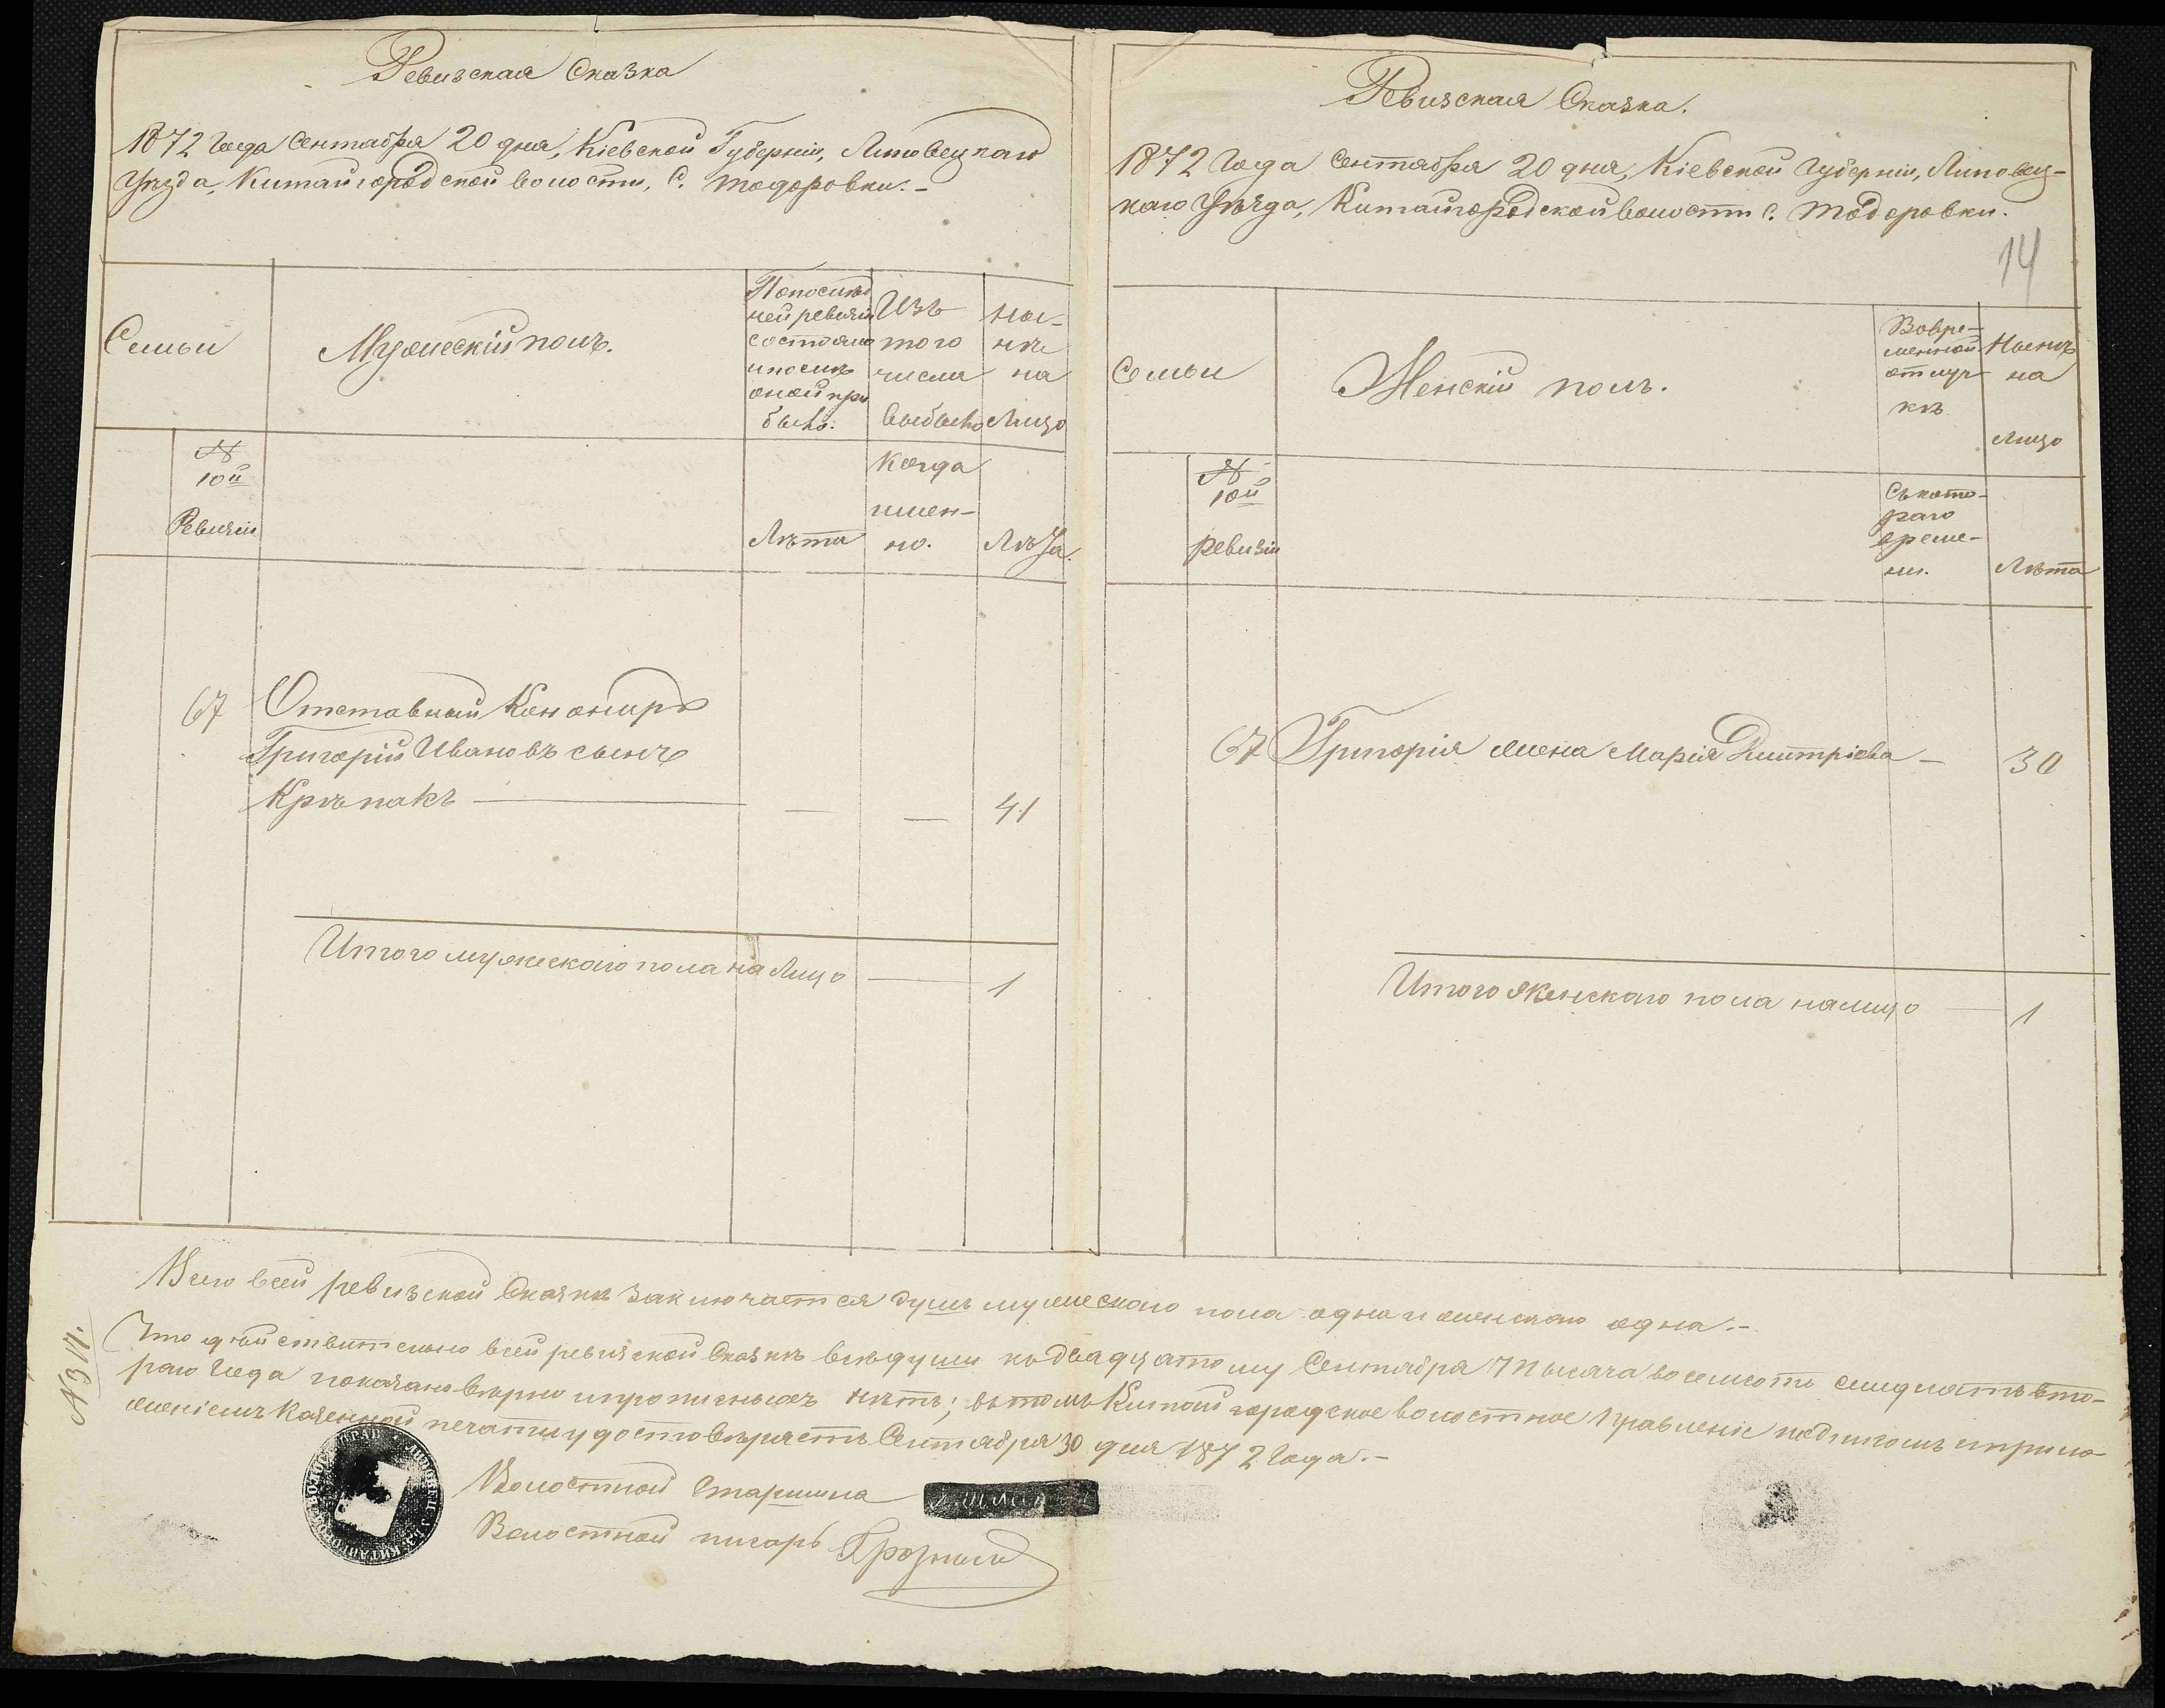 Ревизская Сказка
1872 Года Сентября 20 дня, Кіевской Губерніи, Липовецкаго
Уѣзда, Китайгородской волости, С. Тодоровки.-
Семьи
Мужескій полъ.
По послѣд
ней ревизіи
состояло
и послѣ
оной при
было.
Изъ
того
числа
выбыло
Ны-
нѣ
на
Лицо
№
10й
Ревизіи
Лѣта
Когда
имен-
но.
Лѣта.
67
Отставный Канониръ
Григорій Ивановъ сынъ
Крѣпакъ — — — 41
Итого мужескаго пола на Лицо — 1
Ревизская Сказка.
1872 Года Сентября 20 дня, Кіевской Губерніи, Липовец-
каго Уѣзда, Китайгородской волости С. Тодоровки.
14
Семьи
Женскій полъ.
Во вре-
менной
отлуч-
кѣ
Нынѣ
на
Лицо
№
10й
ревизіи
Съ кото-
раго
време-
ни.
Лѣта
67 Григорія жена Марія Дмитріева — 30
Итого женскаго пола налицо — 1
Всего в сей ревизской Сказкѣ заключается душъ мужескаго пола одна и женскаго одна.-
Что дѣйствительно в сей ревизской Сказкѣ всѣ души къ двадцатому Сентября Тысяча восемсотъ семдесятъ вто-
раго Года показано вѣрно и прописныхъ нѣтъ; въ томъ Китайгородское волостное Правленіе подписомъ и прило-
женіемъ Казенной печати удостовѣряетъ Сентября 30 дня 1872 Года.-
Волостной Старшина
Волостной писарь Грозный